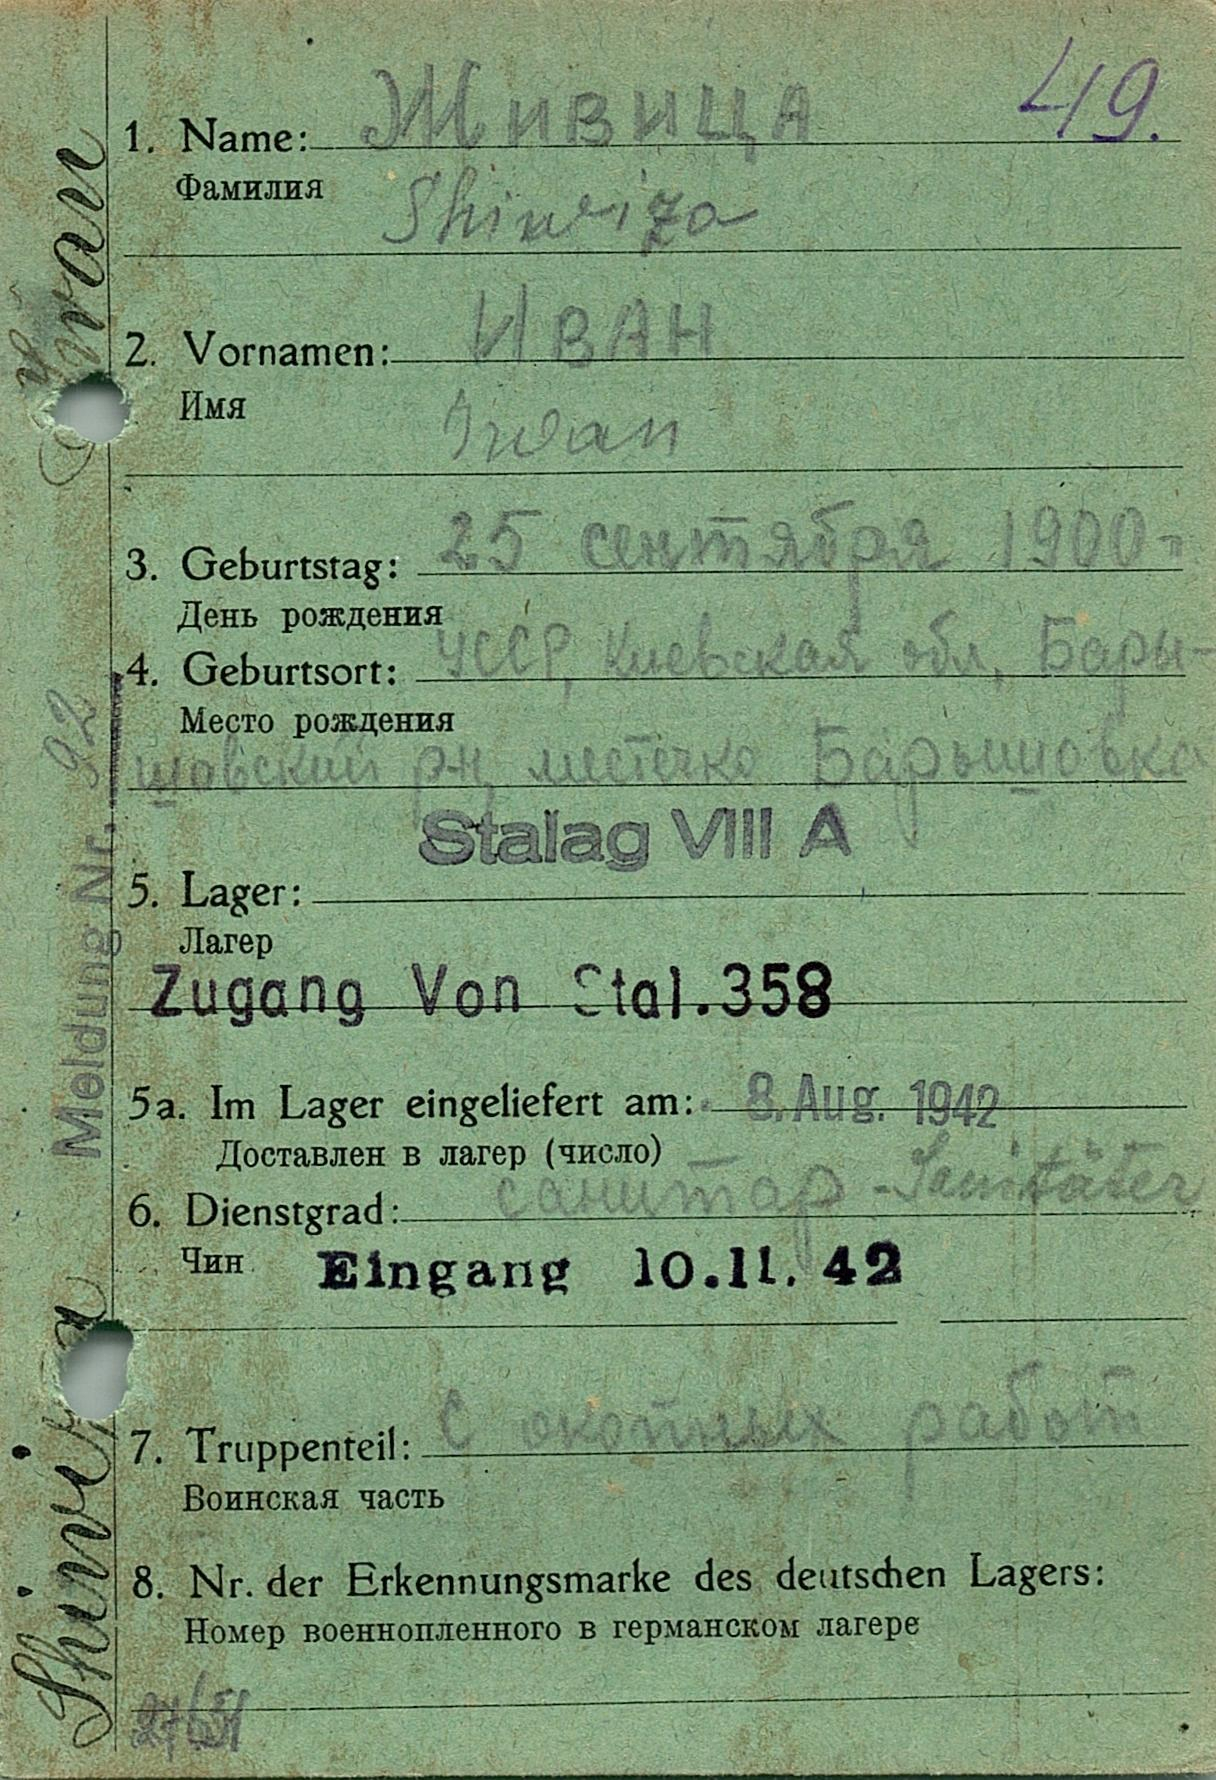 49.
1. Name: Живица
Фамилия
Shiwiza
2. Vornamen: Иван
Имя
Iwan
3. Geburtstag: 25 сентября 1900
День рождения
4. Geburtsort: УССР, Киевская обл, Бары-
Место рождения
шовский р-н, местечко Барышовка
Stalag VIII A
5. Lager:
Лагер
Zugang Von Stal. 358
5a. Im Lager eingeliefert am: 8. Aug. 1942
Доставлен в лагер (число)
6. Dienstgrad: санитар - Sanitäter
Чин
Eingang 10.11.42
7. Truppenteil: С окопных работ
Воинская часть
8. Nr. der Erkennungsmarke des deutschen Lagers:
Номер военнопленного в германском лагере
Shiwiza Iwan
Meldung Nr. 92